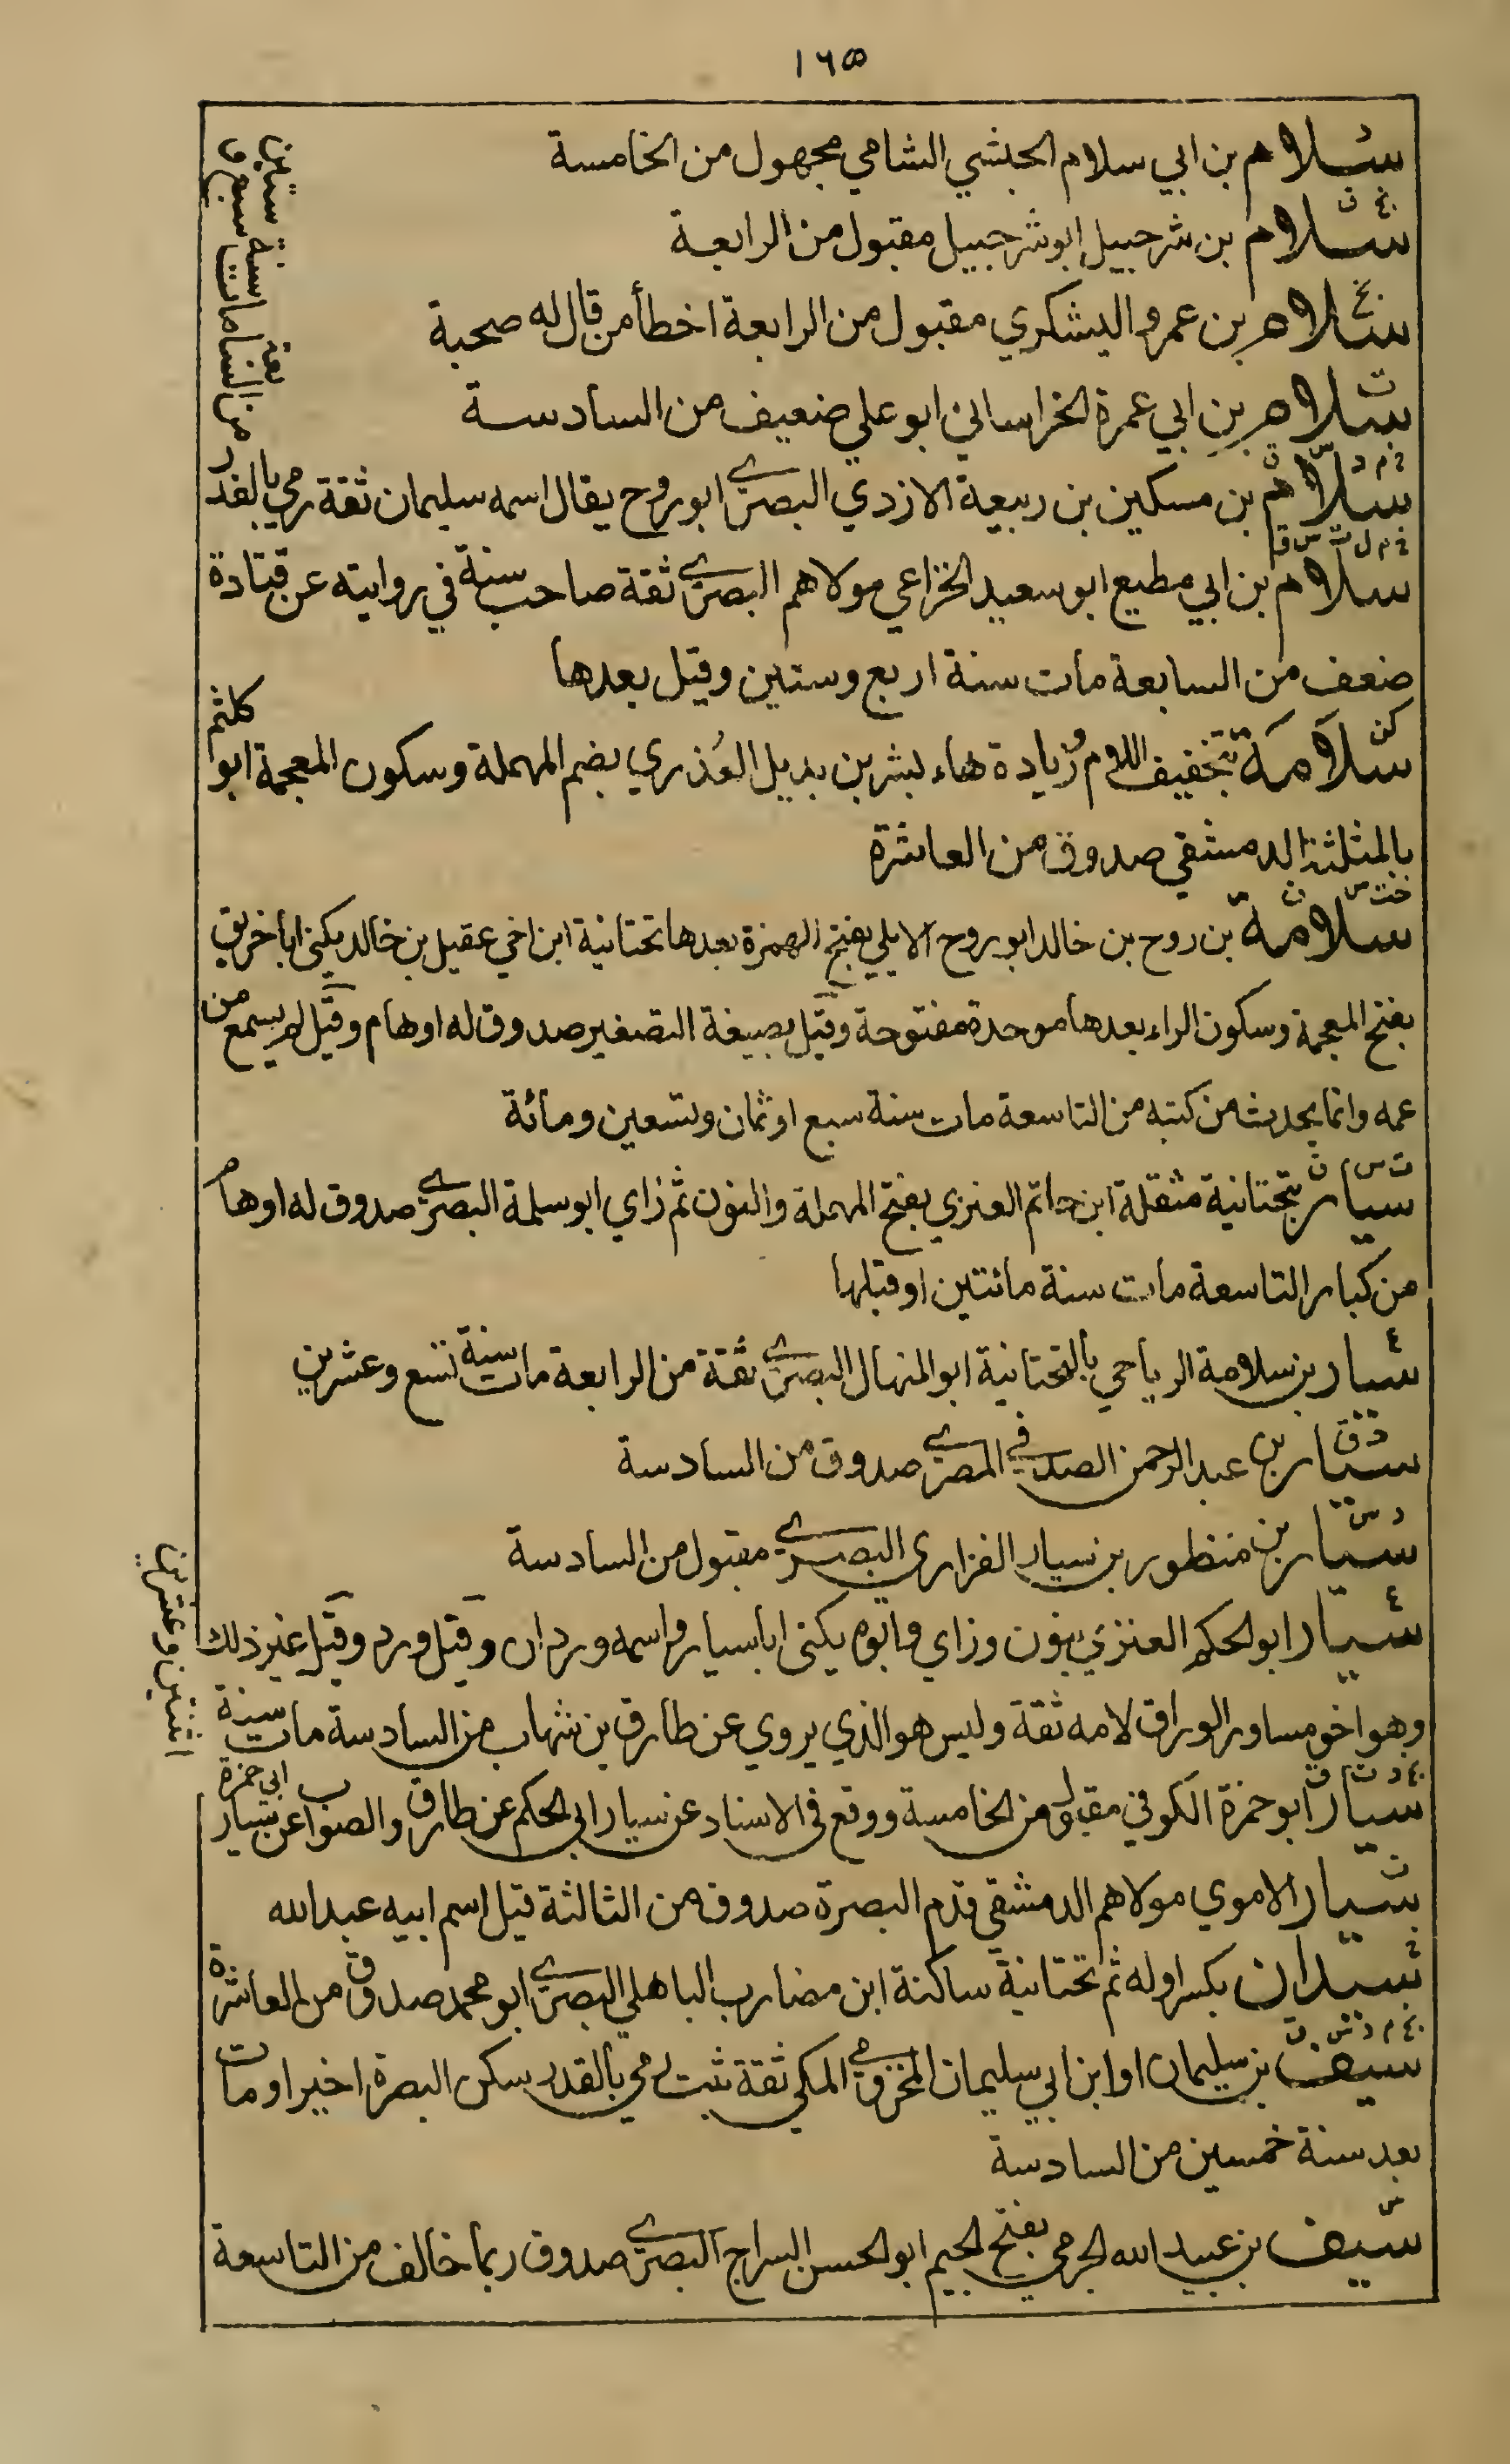 ١٦٥
سلام بن ابي سلام الحبشي الشامي مجهول من الخامسة
بخ ق
سلام بن شرحبيل ابو شرحبيل مقبول من الرابعة
بخ
سلام بن عمرو اليشكري مقبول من الرابعة اخطأ من قال له صحبة
ت
سلام بن ابي عمرة الخراساني ابو علي ضعيف من السادسة
سلام بن مسكين بن ربيعة الازدي البصري ابو روح يقال اسمه سليمان ثقة رمي بالقدر
من السابعة مات سبع و
ستين
خ م ل ت س ق
سلام بن ابي مطيع ابو سعيد الخزاعي مولاهم البصري ثقة صاحب سنة في روايته عن قتادة
ضعف من السابعة مات سنة اربع وستين وقيل بعدها
كن
سلامة بتخفيف اللام وزيادة هاء بشر بن بديل العذري بضم المهملة وسكون المعجمة ابو كلثم
بالمثلثة الدمشقي صدوق من العاشرة
خت س ق
سلامة بن روح بن خالد ابو روح الايلي بفتح الهمزة بعدها تحتانية ابن اخي عقيل بن خالد يكنى ابا خربق
بفتح المعجمة وسكون الراء بعدها موحدة مفتوحة وقيل بصيغة التصغير صدوق له اوهام وقيل لم يسمع من
عمه وانما يحدث من كتبه من التاسعة مات سنة سبع او ثمان وتسعين ومائة
ت س ق
سيار بتحتانية مثقلة ابن حاتم العنزي بفتح المهملة والنون ثم زاي ابو سلمة البصري صدوق له اوهام
من كبار التاسعة مات سنة مائتين او قبلها
ع
سيار بن سلامة الرياحي بالتحتانية ابو المنهال البصري ثقة من الرابعة مات سنة تسع وعشرين
د ق
سيار بن عبد الرحمن الصدفي المصري صدوق من السادسة
د س
سيار بن منظور بن سيار الفزاري البصري مقبول من السادسة
ع
سيار ابو الحكم العنزي بنون وزاي وابوه يكنى ابا سيار واسمه وردان وقيل ورد وقيل غير ذلك
وهو اخو مساور الوراق لامه ثقة وليس هو الذي يروي عن طارق بن شهاب من السادسة مات سنة
اثنتين وعشرين
بخ د ت ق
سيار ابو حمزة الكوفي مقبول من الخامسة ووقع في الاسناد عن سيار ابي الحكم عن طارق والصواب عن سيار ابي حمزة
ت
سيار الاموي مولاهم الدمشقي قدم البصرة صدوق من الثالثة قيل اسم ابيه عبد الله
خ
سيدان بكسر اوله ثم تحتانية ساكنة ابن مضارب الباهلي البصري ابو محمد صدوق من العاشرة
سيف بن سليمان او ابن ابي سليمان المخزومي المكي ثقة ثبت رمي بالقدر سكن البصرة اخيرا ومات
بعد سنة خمسين من السادسة
س
سيف بن عبيد الله الجرمي بفتح الجيم ابو الحسن السراج البصري صدوق ربما خالف من التاسعة